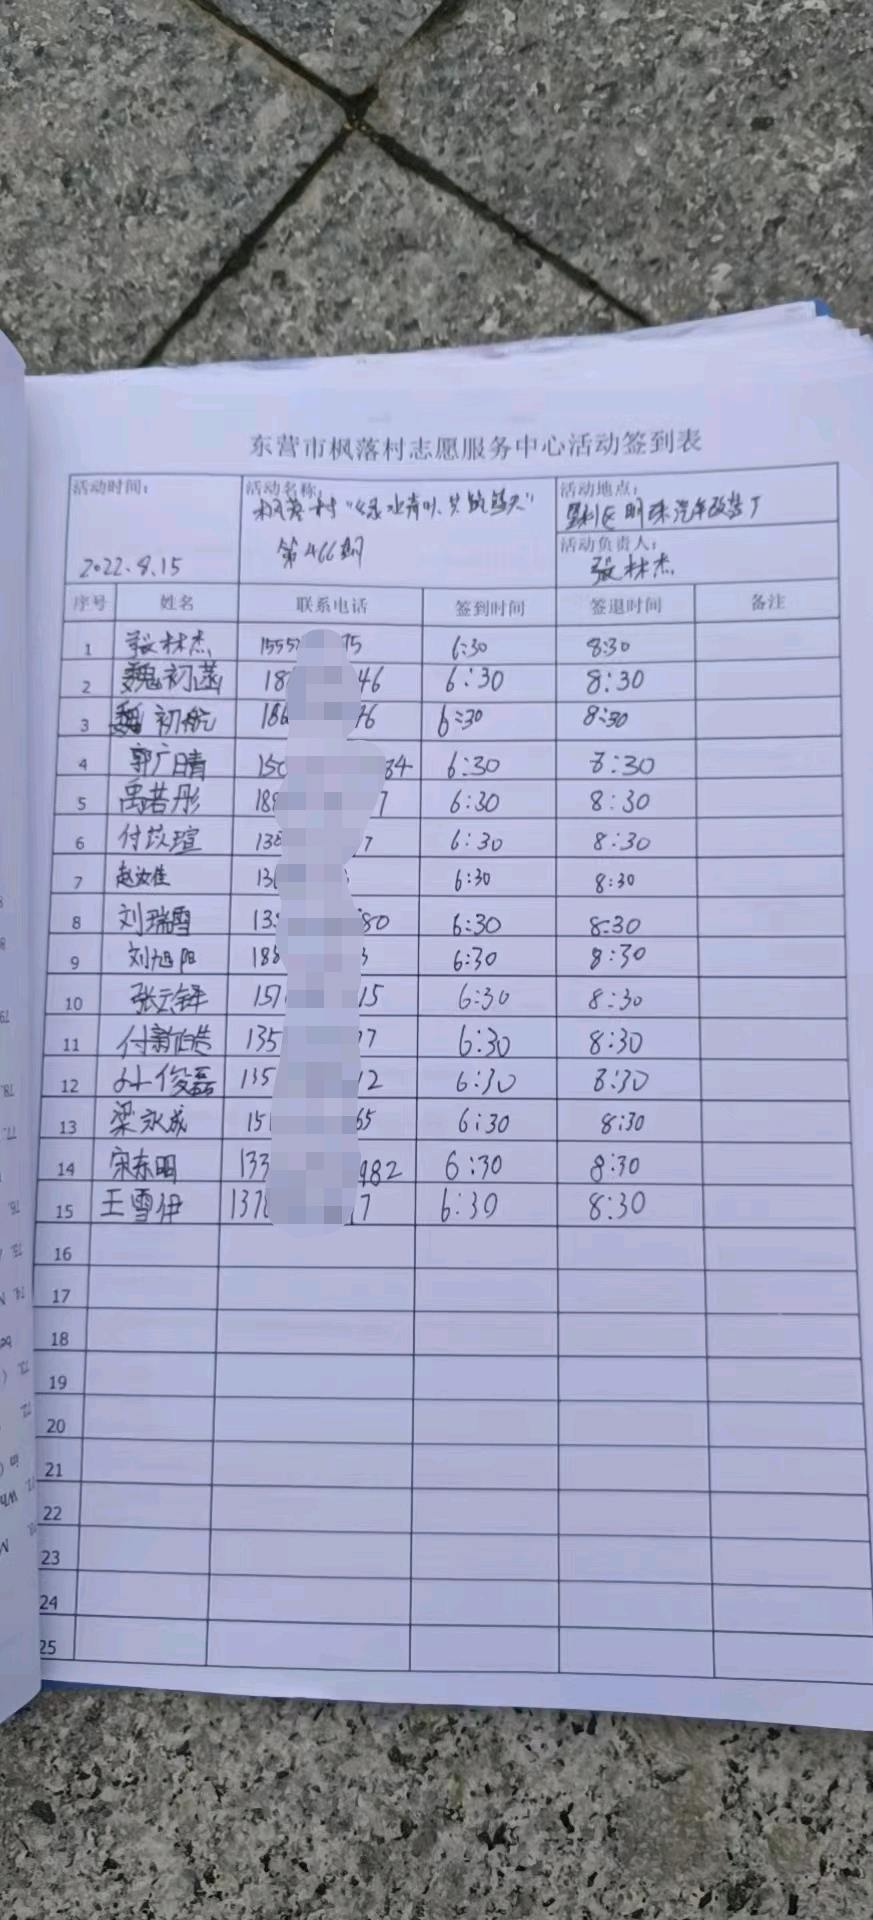 东营市枫落村志愿服务中心活动签到表
活动时间: 活动名称: 活动地点:
枫落村"绿水青山
第466期
2022.8.15
活动负责人:
张林杰
序号 姓名 联系电话 签到时间 签退时间 备注
1 张林杰 1555 75 6:30 8:30
2 魏初菡 18 46 6:30 8:30
3 魏初航 186 46 6:30 8:30
4 郭广晴 150 34 6:30 8:30
5 禹若彤 188 7 6:30 8:30
6 付苡瑄 138 7 6:30 8:30
7 赵汝佳 6:30 8:30
8 刘瑞雪 80 6:30 8:30
9 刘旭阳 188 3 6:30 8:30
10 张云铎 157 15 6:30 8:30
11 付新皓 135 77 6:30 8:30
12 俊磊 135 12 6:30 8:30
13 梁永成 151 65 6:30 8:30
14 宋东明 133 982 6:30 8:30
15 王雪伊 137 7 6:30 8:30
16
17
18
19
20
21
22
23
24
25